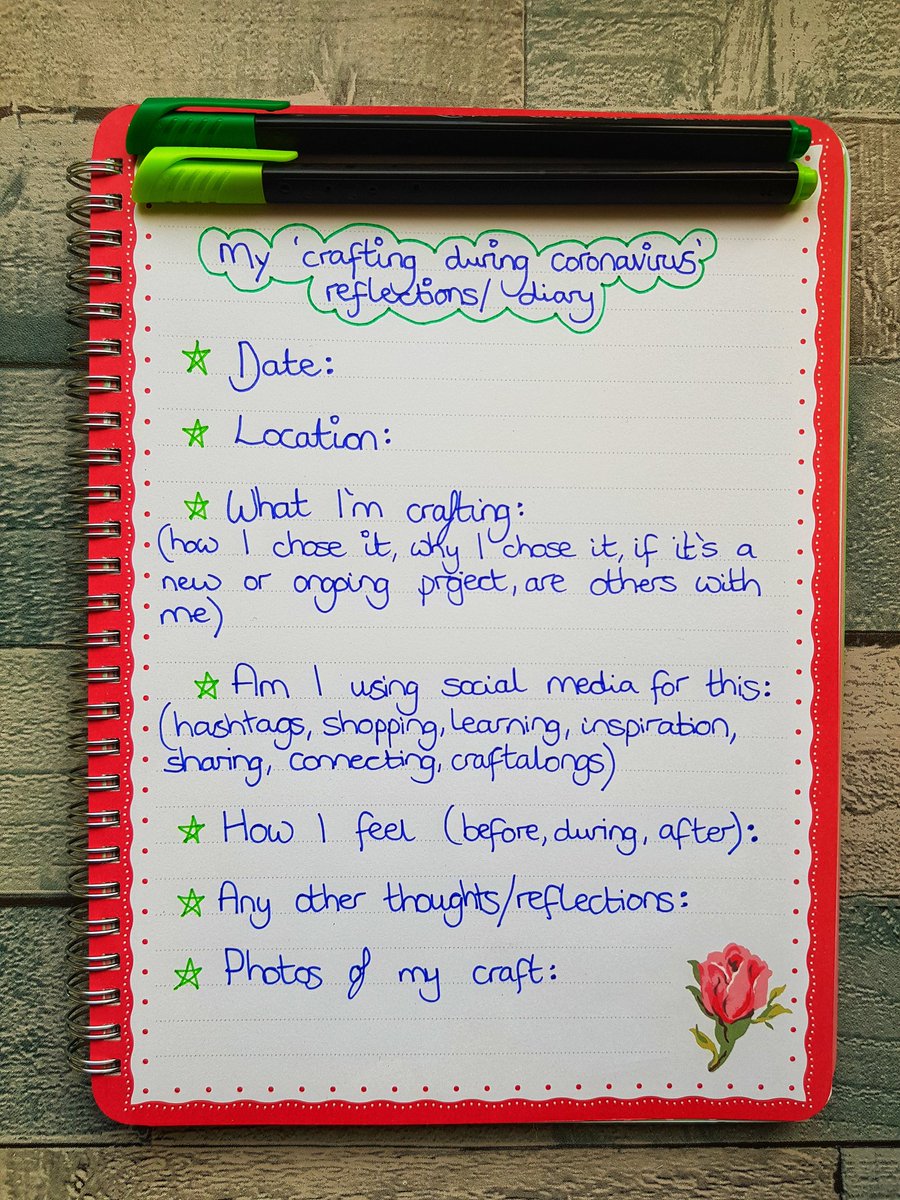 My 'crafting during coronavirus'
reflections/ diary
Date:
Location:
What I'm crafting:
(how I chose it, why I chose it, if it's a
new or ongoing project, are others with
me)
Am I using social media for this:
(hashtags, shopping, learning, inspiration,
sharing, connecting, craftalongs)
How I feel (before, during, after):
Any other thoughts/reflections:
Photos of my craft: